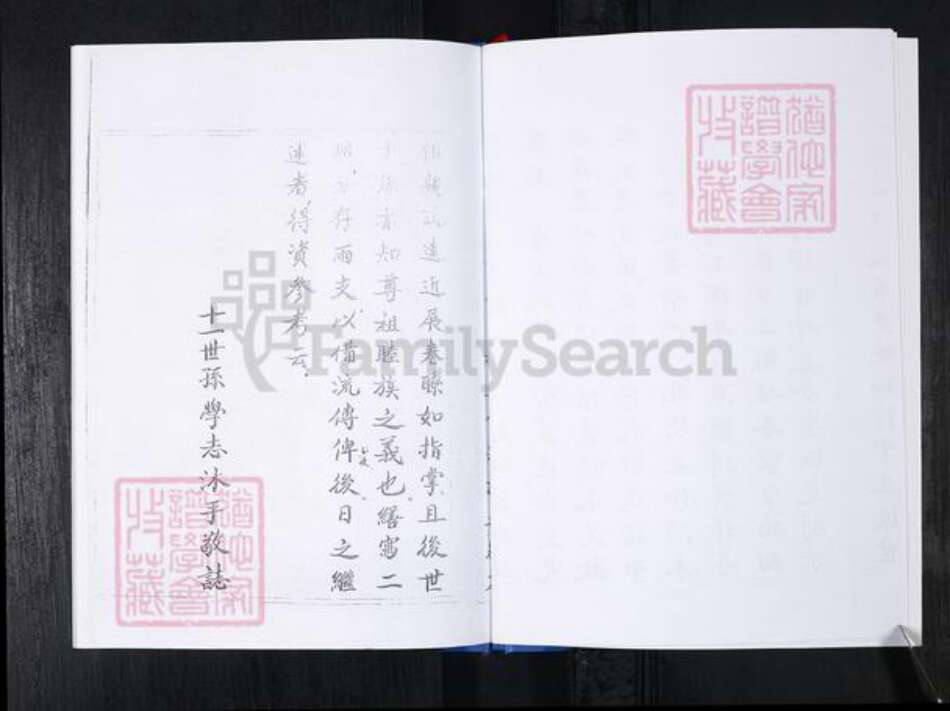 親疏遠近展卷瞭如指掌且後世
知尊祖睦族之義也繕寫二
存兩支以備流傳俾後日之繼
述者得資參考云
十一世孫學志沐手敬誌
FamilySearch
譜學會
收藏
譜學會
收藏